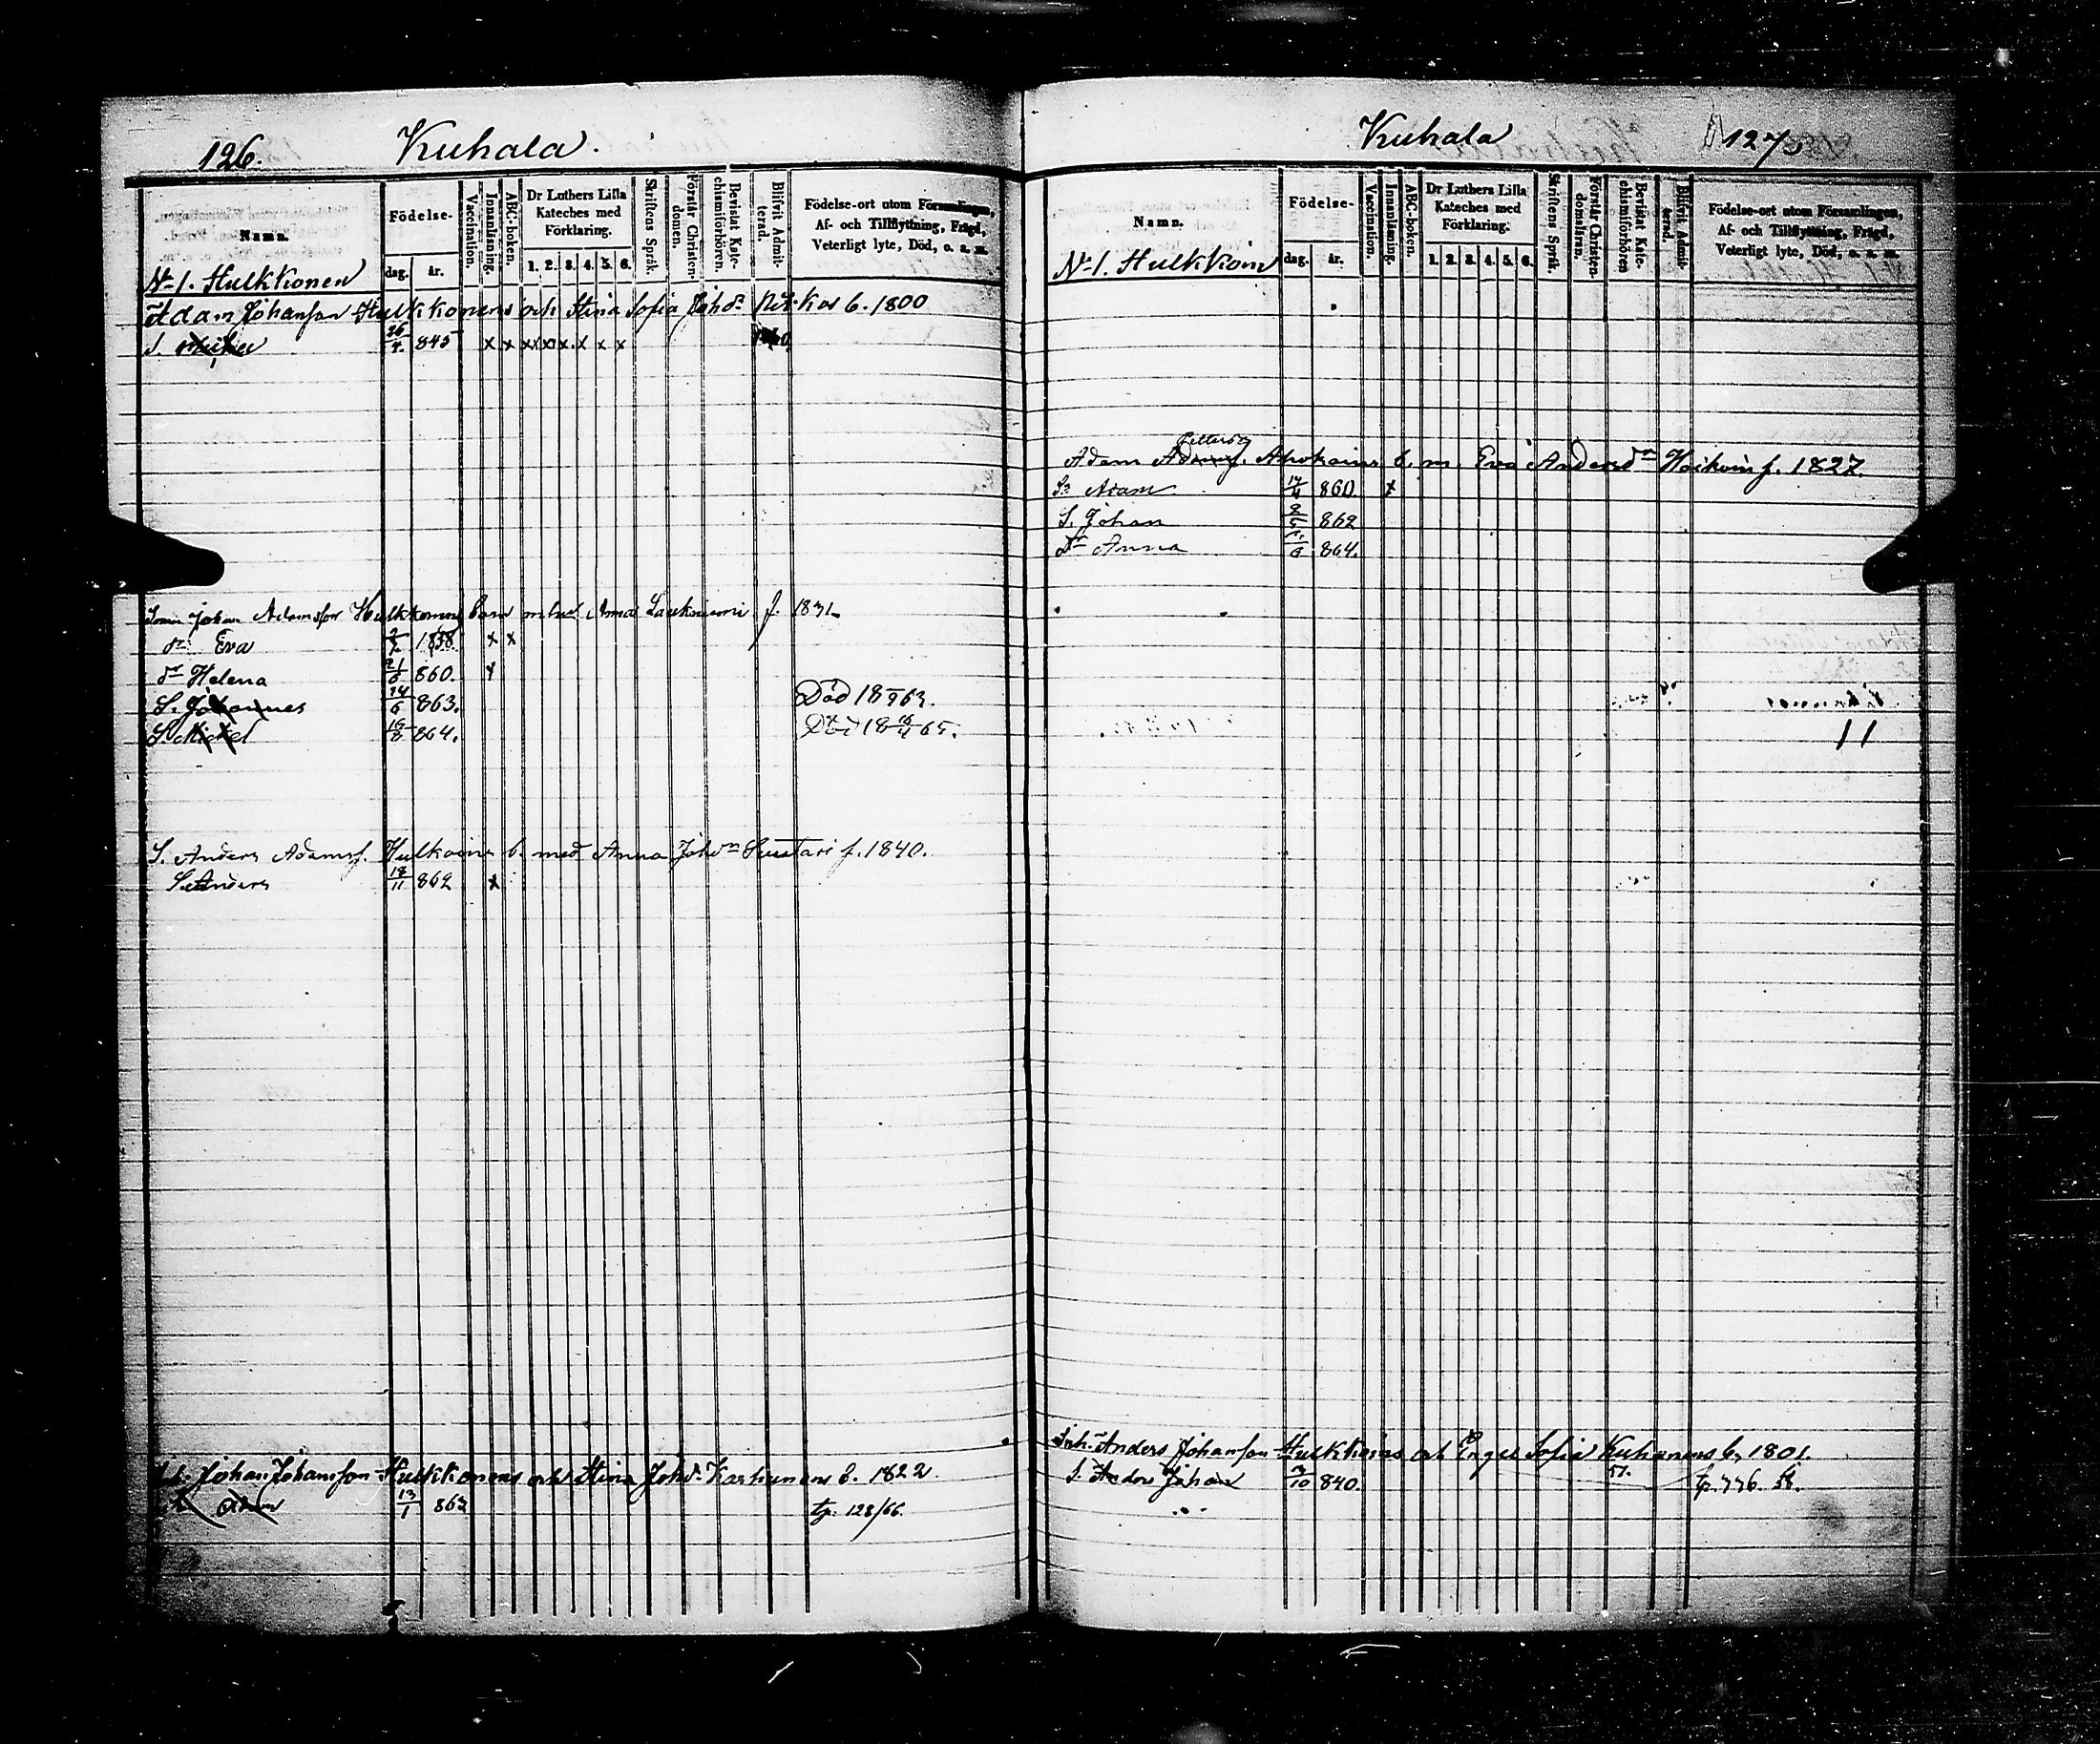 126.
Kuhala.
Namn.
Födelse-
dag.
år.
Vaccination.
Innanläsning.
ABC-boken.
Dr Luthers Lilla
Kateches med
Förklaring.
1. 2. 3. 4. 5. 6.
Skriftens Språk.
Förstår Christen-
domen.
Bevistat Kate-
chismiförhören.
Blifvit Admit-
terad.
Födelse-ort utom Församlingen,
Af- och Tillflyttning, Frägd,
Veterligt lyte, Död, o. s. v.
N-1. Hulkkonen
Adam Johansson Hulkkonens och Stina Sofia Johdr b. 1800
S. 26/4 845 x x x x x x x x
Johan Adamsson Hulkkonens barn Anna Laukniemi f. 1831.
dr Eva 1858 x x
dr Helena 21/6 860. x
S. Johannes 24/6 863. Död 18 63.
S. Michel 16/8 864. Död 18 65.
S. Anders Adamsf. Hulkoins b. med Anna Johdr Suutari f. 1840.
S. Anders 18/11 862 x
Johan Johansson Hulkkonens och Stina Johdr Karhunens b. 1822.
Adam 13/1 863 tp. 128/66.
Kuhala
127
Namn.
Födelse-
dag.
år.
Vaccination.
Innanläsning.
ABC-boken.
Dr Luthers Lilla
Kateches med
Förklaring.
1. 2. 3. 4. 5. 6.
Skriftens Språk.
Förstår Christen-
domsläran.
Bevistat Kate-
chismförhören
Blifvit Admit-
terad.
Födelse-ort utom Församlingen,
Af- och Tillflyttning, Frägd,
Veterligt lyte, Död, o. s. v.
N-1. Hulkkoin
Pettersf
Adam Adamsf. Ahokains b. m. Eva Andersdr Hoikoin f. 1827.
Sn Adam 860 x
S. Johan 2/5 862
dr Anna 864.
11
Inh. Anders Johansson Hulkkoins och Engel Sofia Kuhanens b. 1801.
S. Anders Johan 9/10 840. 57. tp. 776. 58.